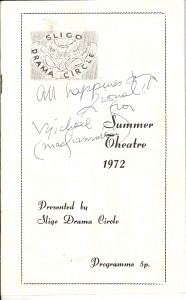 SLIGO
DRAMA CIRCLE
All happiness
Micheál
macLiammóir
Summer
Theatre
1972
Presented by
Sligo Drama Circle
Programme 5p.